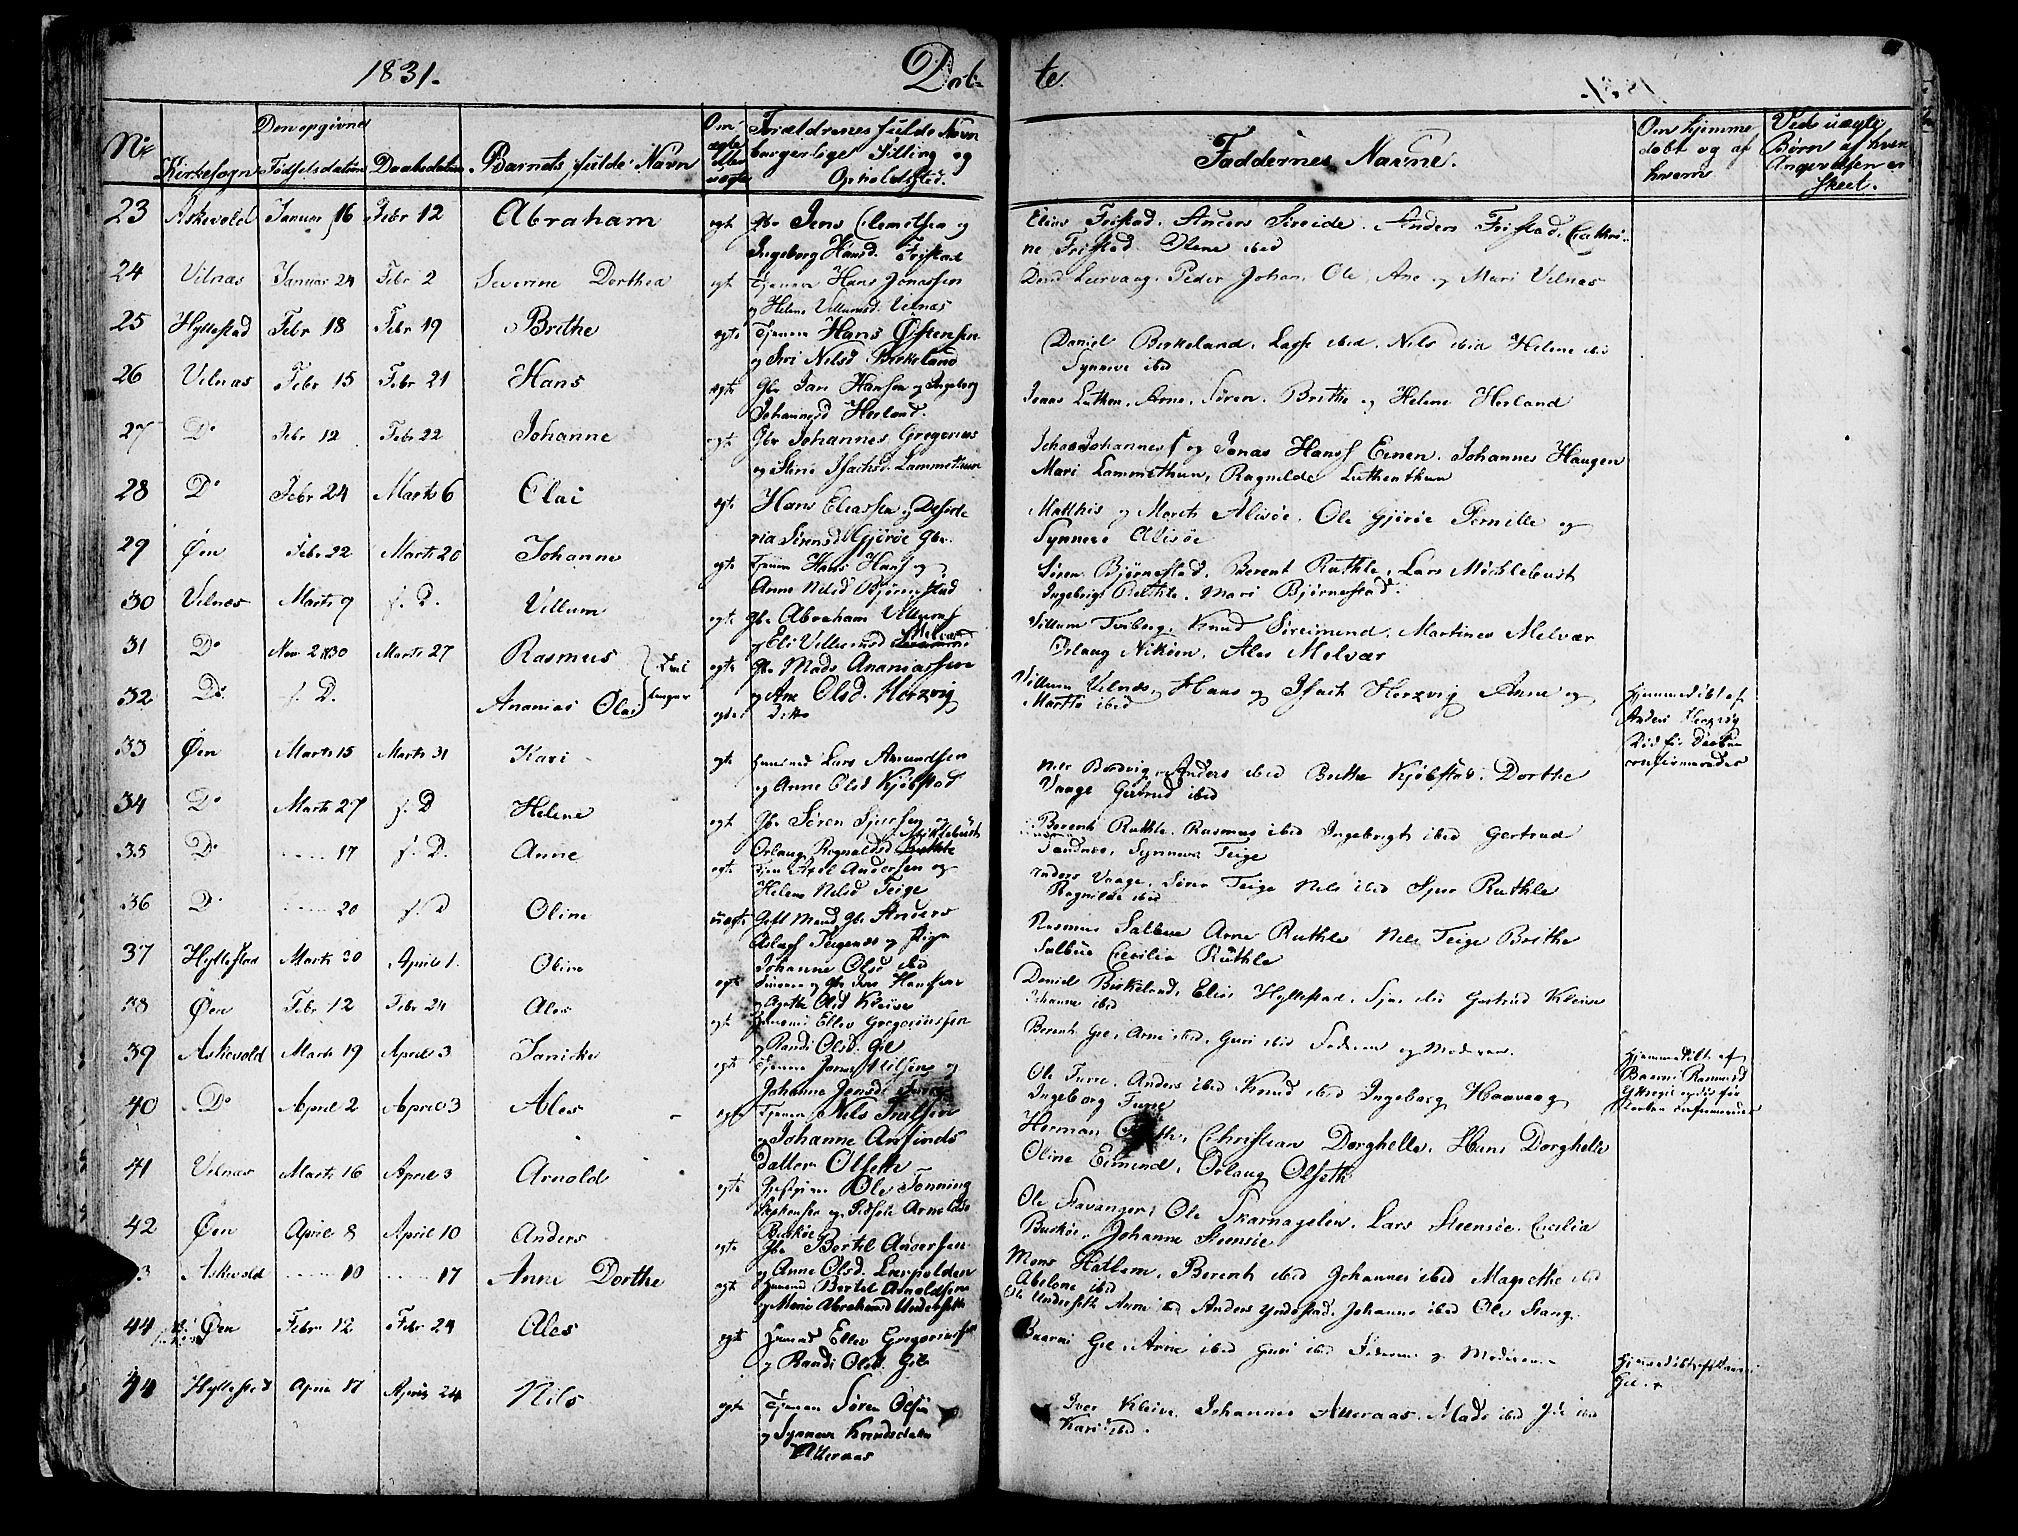 1831. Døb- te.
Den opgivne
No Kirkesogn Fødselsdatum Daabsdatum Barnets fulde Navn
Om ægte eller uægte
Forældrenes fulde Navn borgerlige Stilling og Opholdssted.
Faddernes Navne.
Om hjemme døbt og af hvem
Ved uægte Børn af hvem Angivelsen er skeet.
23 Askevold Januar 16 Febr 12 Abraham egt Gbr Jens Clemetsen og
Ingeborg Hansd. Fristad
Elias Fristad. Anders Sireide. Anders Fristad. Cathri-
ne Fristad. Olene ibid
24 Vilnæs Januar 24 Febr 2 Severine Dorthea egt Tjenere Hans Jonassen
og Helene Villumsd. Vilnæs
Leervaag. Peder Johan, Ole, Ane og Mari Vilnæs
25 Hyllestad Febr 18 Febr 19 Brithe egte Tjenere Hans Østensen
og Siri Nilsd Birkeland
Daniel Birkeland. Lasse ibid. Nils ibid Helene ibid
Synneve ibid
26 Vilnæs Febr 15 Febr 21 Hans egte Gbr Jan Hansen og Ingeborg
Johannesd Herland.
Jonas Luthen. Arne, Søren. Brithe og Helene Herland
27 Do Febr 12 Febr 22 Johanne egte Gbr Johannes Gregorius
og Stine Isachsd. Lammethun
Johannes og Jonas Hanss Eenen. Johannes Haugen
Mari Lammethun, Ragnilde Luthenthun
28 Do Febr 24 Marts 6 Elai egte Hans Eliassen og
ria Sørensd Gjørøe Gbr.
Matthis og Marith Alisøe. Ole Gjørøe Pernille og
Synneve Alisøe
29 Øen Febr 22 Marts 20 Johanne egte Tjener Hans Hanss og
Anne Nilsd Bjørnestad
Søren Bjørnestad. Berent Ruthle. Lars Møchlebust
Ingebrigt Ruthle. Mari Bjørnestad.
30 Vilnæs Marts 9 s. D. Villum egte Gbr Abraham Villums
og Eli Villumsd Melvær
Villum Tviberg. Knud Sireimend. Martines Melvær
Orlaug Nikøen. Ales Melvær
31 Do Nov 2 1830 Marts 27 Rasmus Tvillinger egte Gbr Mads Ananiassen
og Ane Olsd. Herzvig
Villum Vilnæs, Hans og Isach Herzvig Anne og
Marthe ibid
32 Do s. D. Ananias Olai egte Ditto
Hjemmedøbt af
Anders Herzvig
Død før Daaben
confirmeredes
33 Øen Marts 15 Marts 31 Kari egt Huusmd Lars Amundsen
og Anne Olsd Kjøbstad
Nils Bordvig, Anders ibid Brithe Kjøbstad. Dorthe
Vaage Gjertrud ibid
34 Do Marts 27 s. D Helene egt Gbr Søren Sjursen og
Orlaug Rognaldsd Mikklebust
Berent Ruthle. Rasmus ibid Ingebrigt ibid Gertrud
Sandnæs, Synneve Teige
35 Do ..... 17 s. D. Anne egt Andersen og
Helene Nilsd Teige
Anders Vaage. Søren Teige Nils ibid Sjur Ruthle
Ragnilde ibid
36 Do ..... 20 s. D Oline uægte Gift Mand Gbr Anders
Aslags Teigenes og Pige
Johanne Olsd ibid
Rasmus Salbue Arne Ruthle Nils Teige Brithe
Salbue Cecilia Ruthle
37 Hyllestad Marts 30 April 1. Oline egt Jens Hansen
og Agathe Olsd Kleive
Daniel Birkeland. Elias Hyllestad. Sjur ibid Gertrud Kleive
Johanne ibid
38 Øen Febr 12 Febr 24 Ales egt Huusmd Ellev Gregoriussen
og Randi Olsd. Gil
Berent Gil. Arne ibid, Guri ibid Faderen og Moderen.
39 Askevold Marts 19 April 3 Janicke egt Tjenere Jonas Nilsen og
Johanne Jensd
Ole Furre. Anders ibid Knud ibid Ingeborg Haavaag
Ingeborg Furre
Hjemmedøbt af
Baarni Rasmusd
før
Daaben confirmeredes
40 Do April 2 April 3 Ales egt Tjener Nils Trulsen
og Johanne Anfinds
datter Olseth
Herman, Christian Dorghelle, Hans Dorghelle
Oline Eimend, Orlaug Olseth
41 Vilnæs Marts 16 April 3 Arnold egte Gjestgiver Ole Tonning
Stephensen og Sidsele Arnolds
Buskøe
Ole Stavanger, Ole Skarnagelen. Lars Steensøe. Cecilia
Buskøe. Johanne Steensøe
42 Øen April 8 April 10 Anders egte Gbr Bertil Andersen
og Anne Olsd. Lærpolden
Mons Hatlem. Berent ibid Johannes ibid Magrethe ibid
Abelone ibid
43 Askevold ..... 10 ..... 17 Anne Dorthe egt Huusmd Bertel Arnoldsen
og Marie Abrahamsd Undersæth
Ole Undersæth Arne ibid Anders Yndestad. Johanne ibid Ole Stang.
44 Øen Febr 12 Febr 24 Ales egt Huusmd Ellev Gregoriuss
og Randi Olsd. Gil
Baarni Gil. Arne ibid Guri ibid Faderen og Moderen.
Hjemmedøbt af Baarni
Gil.
44 Hyllestad April 17 April 24 Nils egte Tjener Søren Olsen
og Synneve Knudsdatter
Alteraas
Iver Kleive. Johannes Alteraas. Mads ibid ibid
Kari ibid.